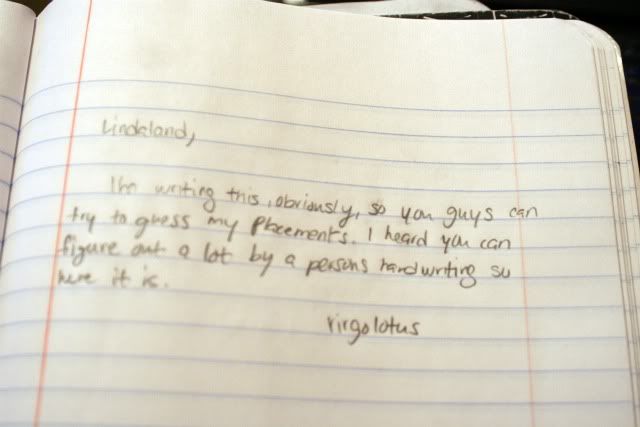 Lindaland,
I'm writing this, obviously, so you guys can
try to guess my placements. I heard you can
figure out a lot by a persons handwriting so
here it is.
virgolotus